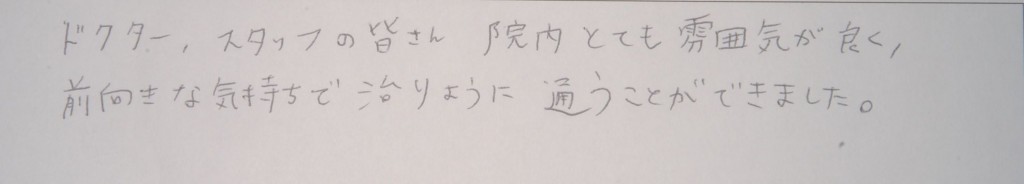 ドクター, スタッフの皆さん 院内とても雰囲気が良く,
前向きな気持ちで治りように通うことができました。